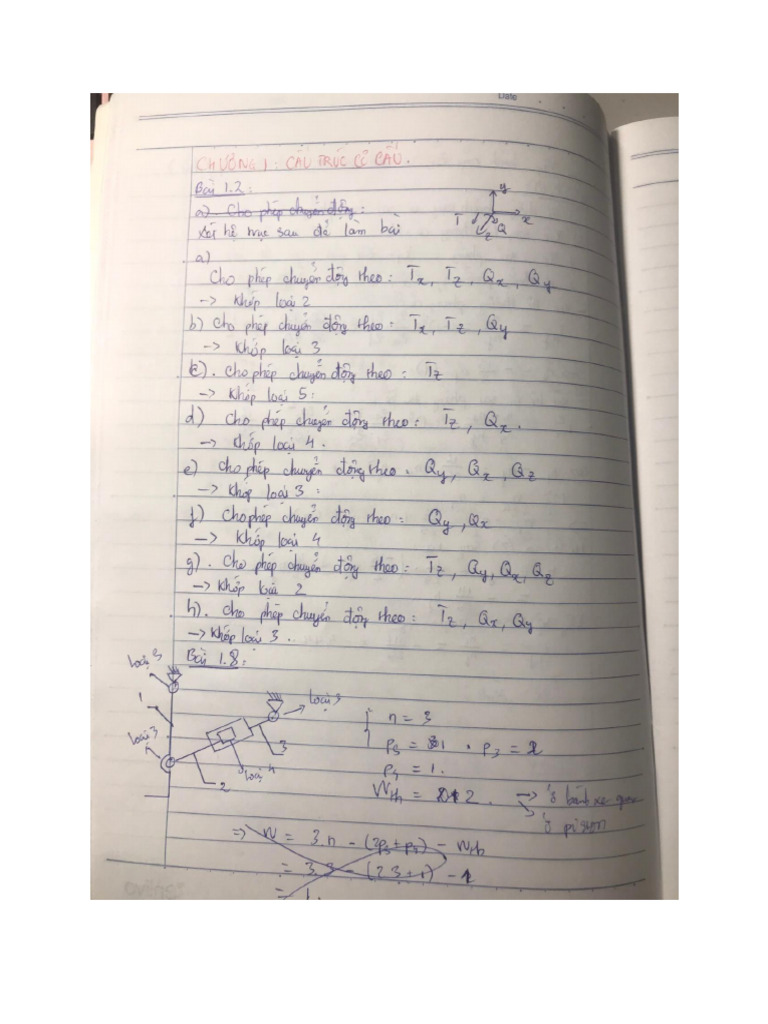 Date
CHƯƠNG 1: CẤU TRÚC CƠ CẤU.
Bài 1.2:
a). Cho phép chuyển động:
Xét hệ trục sau để làm bài
y
x
z
T
Q
a)
Cho phép chuyển động theo: Tx, Tz, Qx, Qy
-> Khớp loại 2
b) Cho phép chuyển động theo: Tx, Tz, Qy
-> Khớp loại 3
c). Cho phép chuyển động theo: Tz
-> Khớp loại 5:
d) Cho phép chuyển động theo: Tz, Qx.
-> Khớp loại 4.
e) Cho phép chuyển động theo. Qy, Qx, Qz
-> Khớp loại 3:
f) Cho phép chuyển động theo: Qy, Qx
-> Khớp loại 4
g). Cho phép chuyển động theo: Tz, Qy, Qx, Qz
-> Khớp loại 2
h). Cho phép chuyển động theo: Tz, Qx, Qy
-> Khớp loại 3.
Bài 1.8:
1
loại 3
2
loại 4
3
n = 3
p4 = 1.
=> W = 3.n - (2p5 + p4) - Wth
= 3.3 - (2.3+1) - 1
= 1.